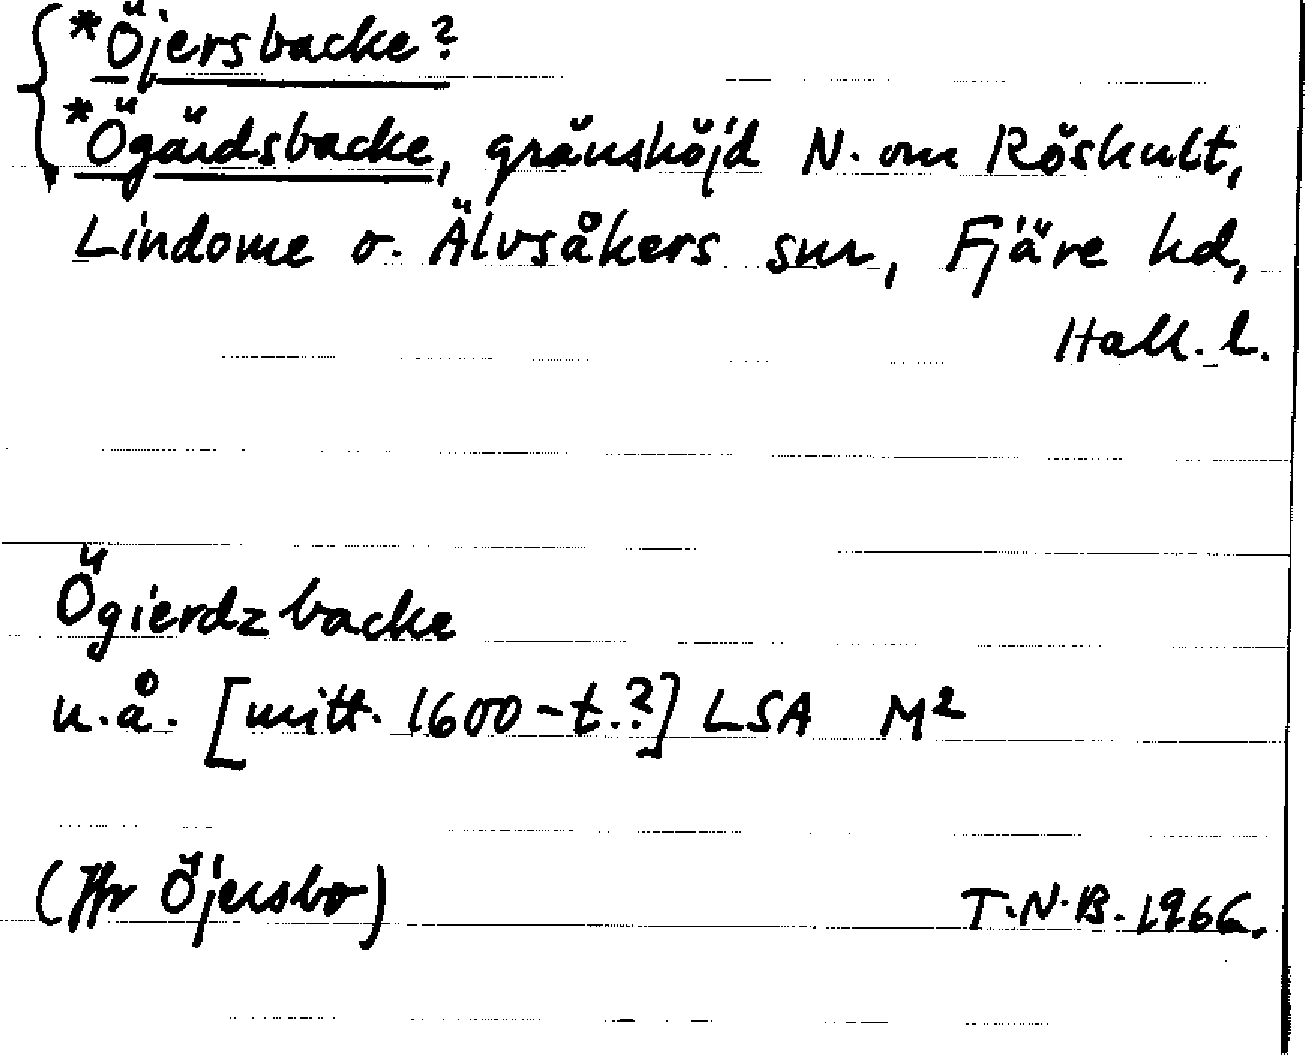 *Öjersbacke?
*Ögärdsbacke, gränshöjd N. om Röskult,
Lindome o. Älvsåkers snr, Fjäre hd,
Hall. l.
Ögierdzbacke
u.å. [mitt. 1600-t.?] LSA M²
(Jfr Öjersbo)
T.N.B. 1966.